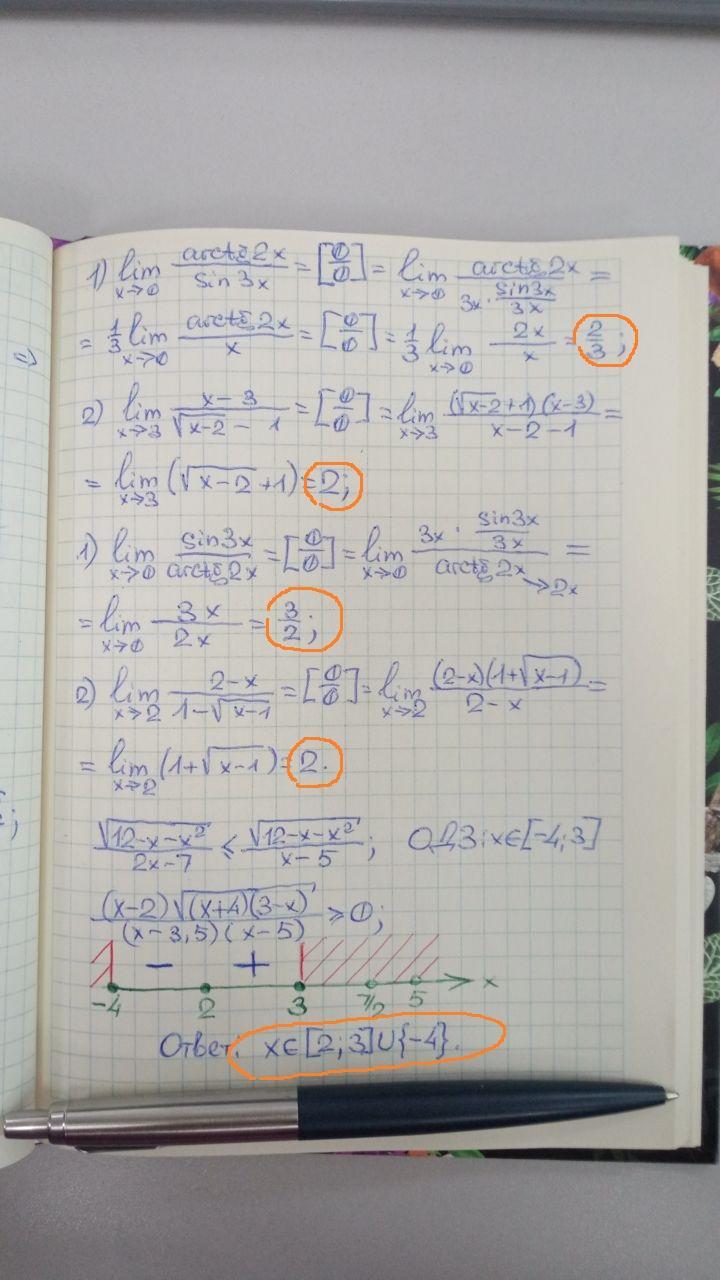 1) lim x→0 arctg2x / sin3x = [0/0] = lim x→0 arctg2x / (3x · sin3x/3x) =
= 1/3 lim x→0 arctg2x / x = [0/0] = 1/3 lim x→0 2x/x = 2/3;
2) lim x→3 (x-3) / (√(x-2) - 1) = [0/0] = lim x→3 (√(x-2)+1)(x-3) / (x-2-1) =
= lim x→3 (√(x-2)+1) = 2;
1) lim x→0 sin3x / arctg2x = [0/0] = lim x→0 (3x · sin3x/3x) / arctg2x → 2x =
= lim x→0 3x/2x = 3/2;
2) lim x→2 (2-x) / (1-√(x-1)) = [0/0] = lim x→2 (2-x)(1+√(x-1)) / (2-x) =
= lim x→2 (1+√(x-1)) = 2.
√(12-x-x²) / (2x-7) ≤ √(12-x-x²) / (x-5); ОДЗ: x∈[-4;3]
(x-2)√((x+4)(3-x)) / ((x-3,5)(x-5)) ≥ 0;
− +
-4 2 3 7/2 5 x
Ответ: x∈[2;3]∪{-4}.
⇒
;